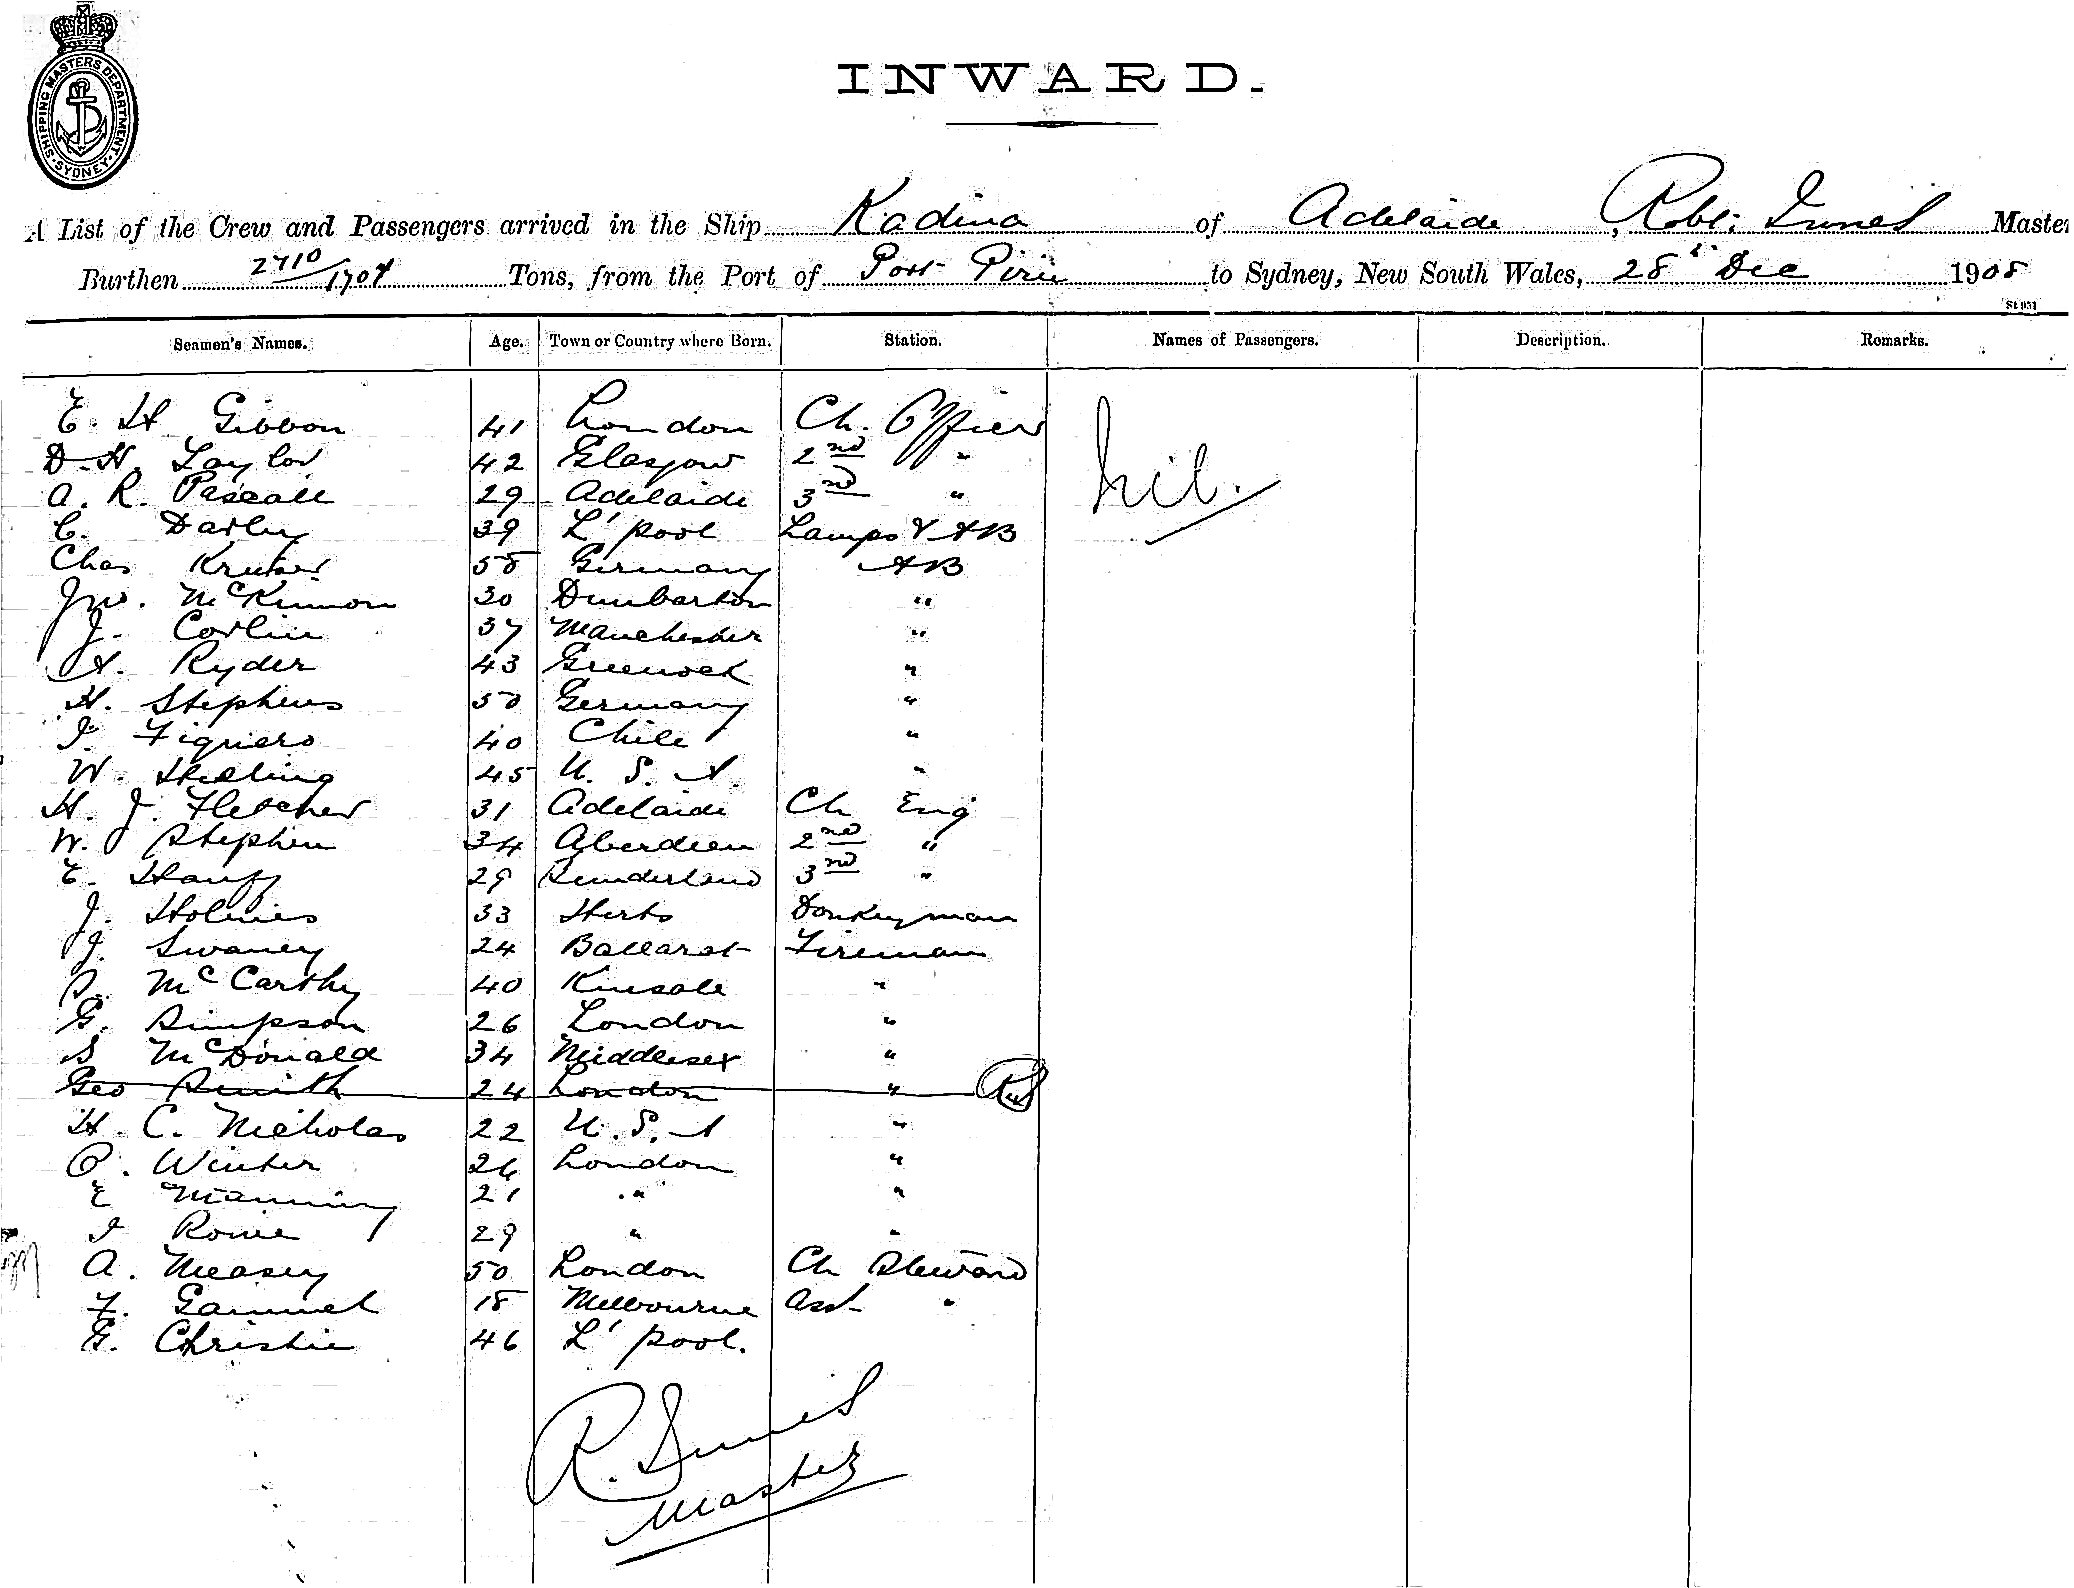 SHIPPING MASTERS DEPARTMENT · SYDNEY ·
INWARD.
A List of the Crew and Passengers arrived in the Ship Kadina of Adelaide Robt. Innes Master
Burthen 2710/1707 Tons, from the Port of Port Pirie to Sydney, New South Wales, 28th Dec 1908
St 931
Seamen's Names. Age. Town or Country where Born. Station. Names of Passengers. Description. Remarks.
E. H Gibbon 41 London Ch. Officer nil.
D. H. Taylor 42 Glasgow 2nd "
A. R. Pascall 29 Adelaide 3rd "
C. Darby 39 L'pool Lamps & AB
Chas 58 Germany AB
Jno. McKinnon 30 Dunbarton "
J. Corlin 37 Manchester "
A. Ryder 43 Greenock "
H. Stephens 50 Germany "
I. Figuero 40 Chile "
W. 45 U. S. A. "
H. J. Fletcher 31 Adelaide Ch Eng
W. Stephen 34 Aberdeen 2nd "
E. 29 Sunderland 3rd "
J. Holmes 33 Herts Donkeyman
J. Swaney 24 Ballarat Fireman
D. McCarthy 40 Kinsale "
G. Simpson 26 London "
S McDonald 34 Middlesex "
Geo Smith 24 London "
H. C. Nicholas 22 U. S. A "
P. Winter 26 London "
E Manning 21 " "
I Rowe 29 " "
A. Measey 50 London Ch Steward
F. Gammel 18 Melbourne Asst "
G. Christie 46 L'pool.
R. Innes
Master